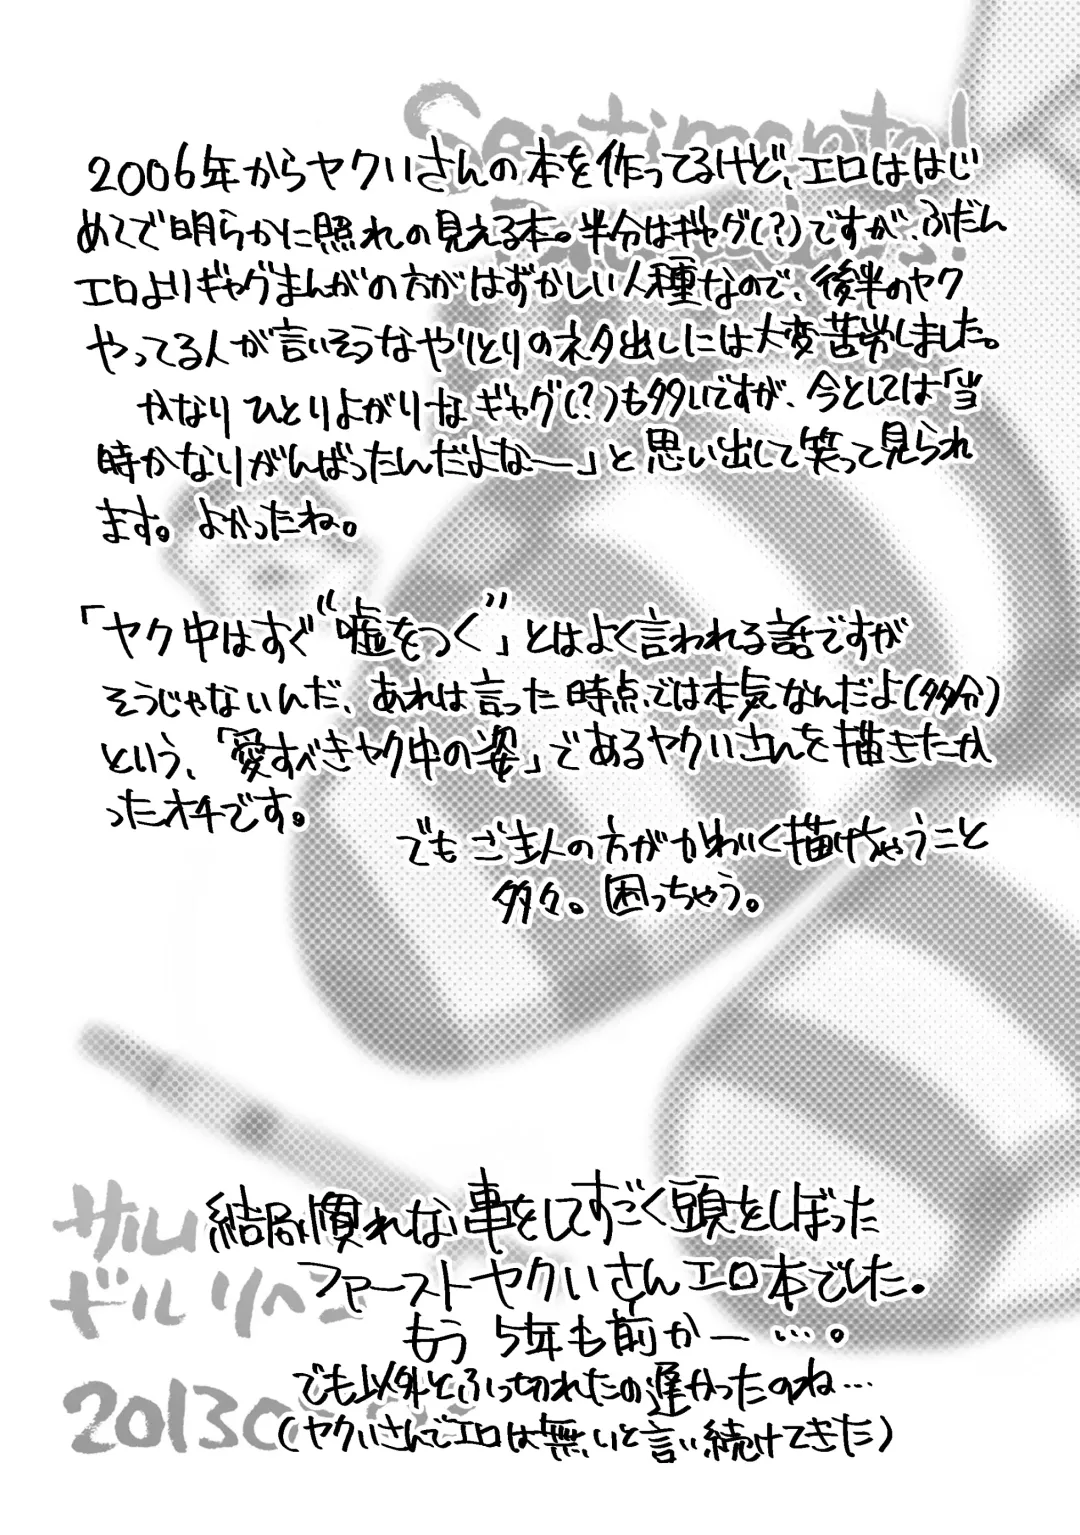 Sentimental
2006年からヤクいさんの本を作ってるけど、エロははじ
めてで明らかに照れの見える本。半分はギャグ(?)ですが、ふだん
エロよりギャグまんがの方がはずかしい人種なので、後半のヤク
やってる人が言いそうなやりとりのネタ出しには大変苦労しました。
かなりひとりよがりなギャグ(?)も多いですが、今としては「当
時かなりがんばったんだよなー」と思い出して笑って見られ
ます。よかったね。
「ヤク中はすぐ“嘘をつく”」とはよく言われる話ですが
そうじゃないんだ、あれは言った時点では本気なんだよ(多分)
という、「愛すべきヤク中の姿」であるヤクいさんを描きたか
ったオチです。
でもご主人の方がかわいく描けちゃうこと
多々。困っちゃう。
結局慣れない事をしてすごく頭をしぼった
ファーストヤクいさんエロ本でした。
もう5年も前かー…。
でも以外とふっ切れたの遅かったのね…
(ヤクいさんでエロは無いと言い続けてきた)
サルレ
ドルリヘン
2013